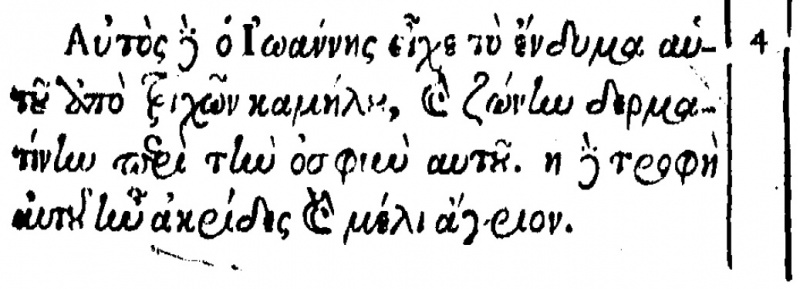 Αὐτὸς δὲ ὁ Ἰωάννης εἶχε τὸ ἔνδυμα αὑ- 4
τοῦ ἀπὸ τριχῶν καμήλου, καὶ ζώνην δερμα-
τίνην περὶ τὴν ὀσφιὺ αὐτοῦ. ἡ δὲ τροφὴ
αὐτοῦ ἦν ἀκρίδες καὶ μέλι ἄγριον.